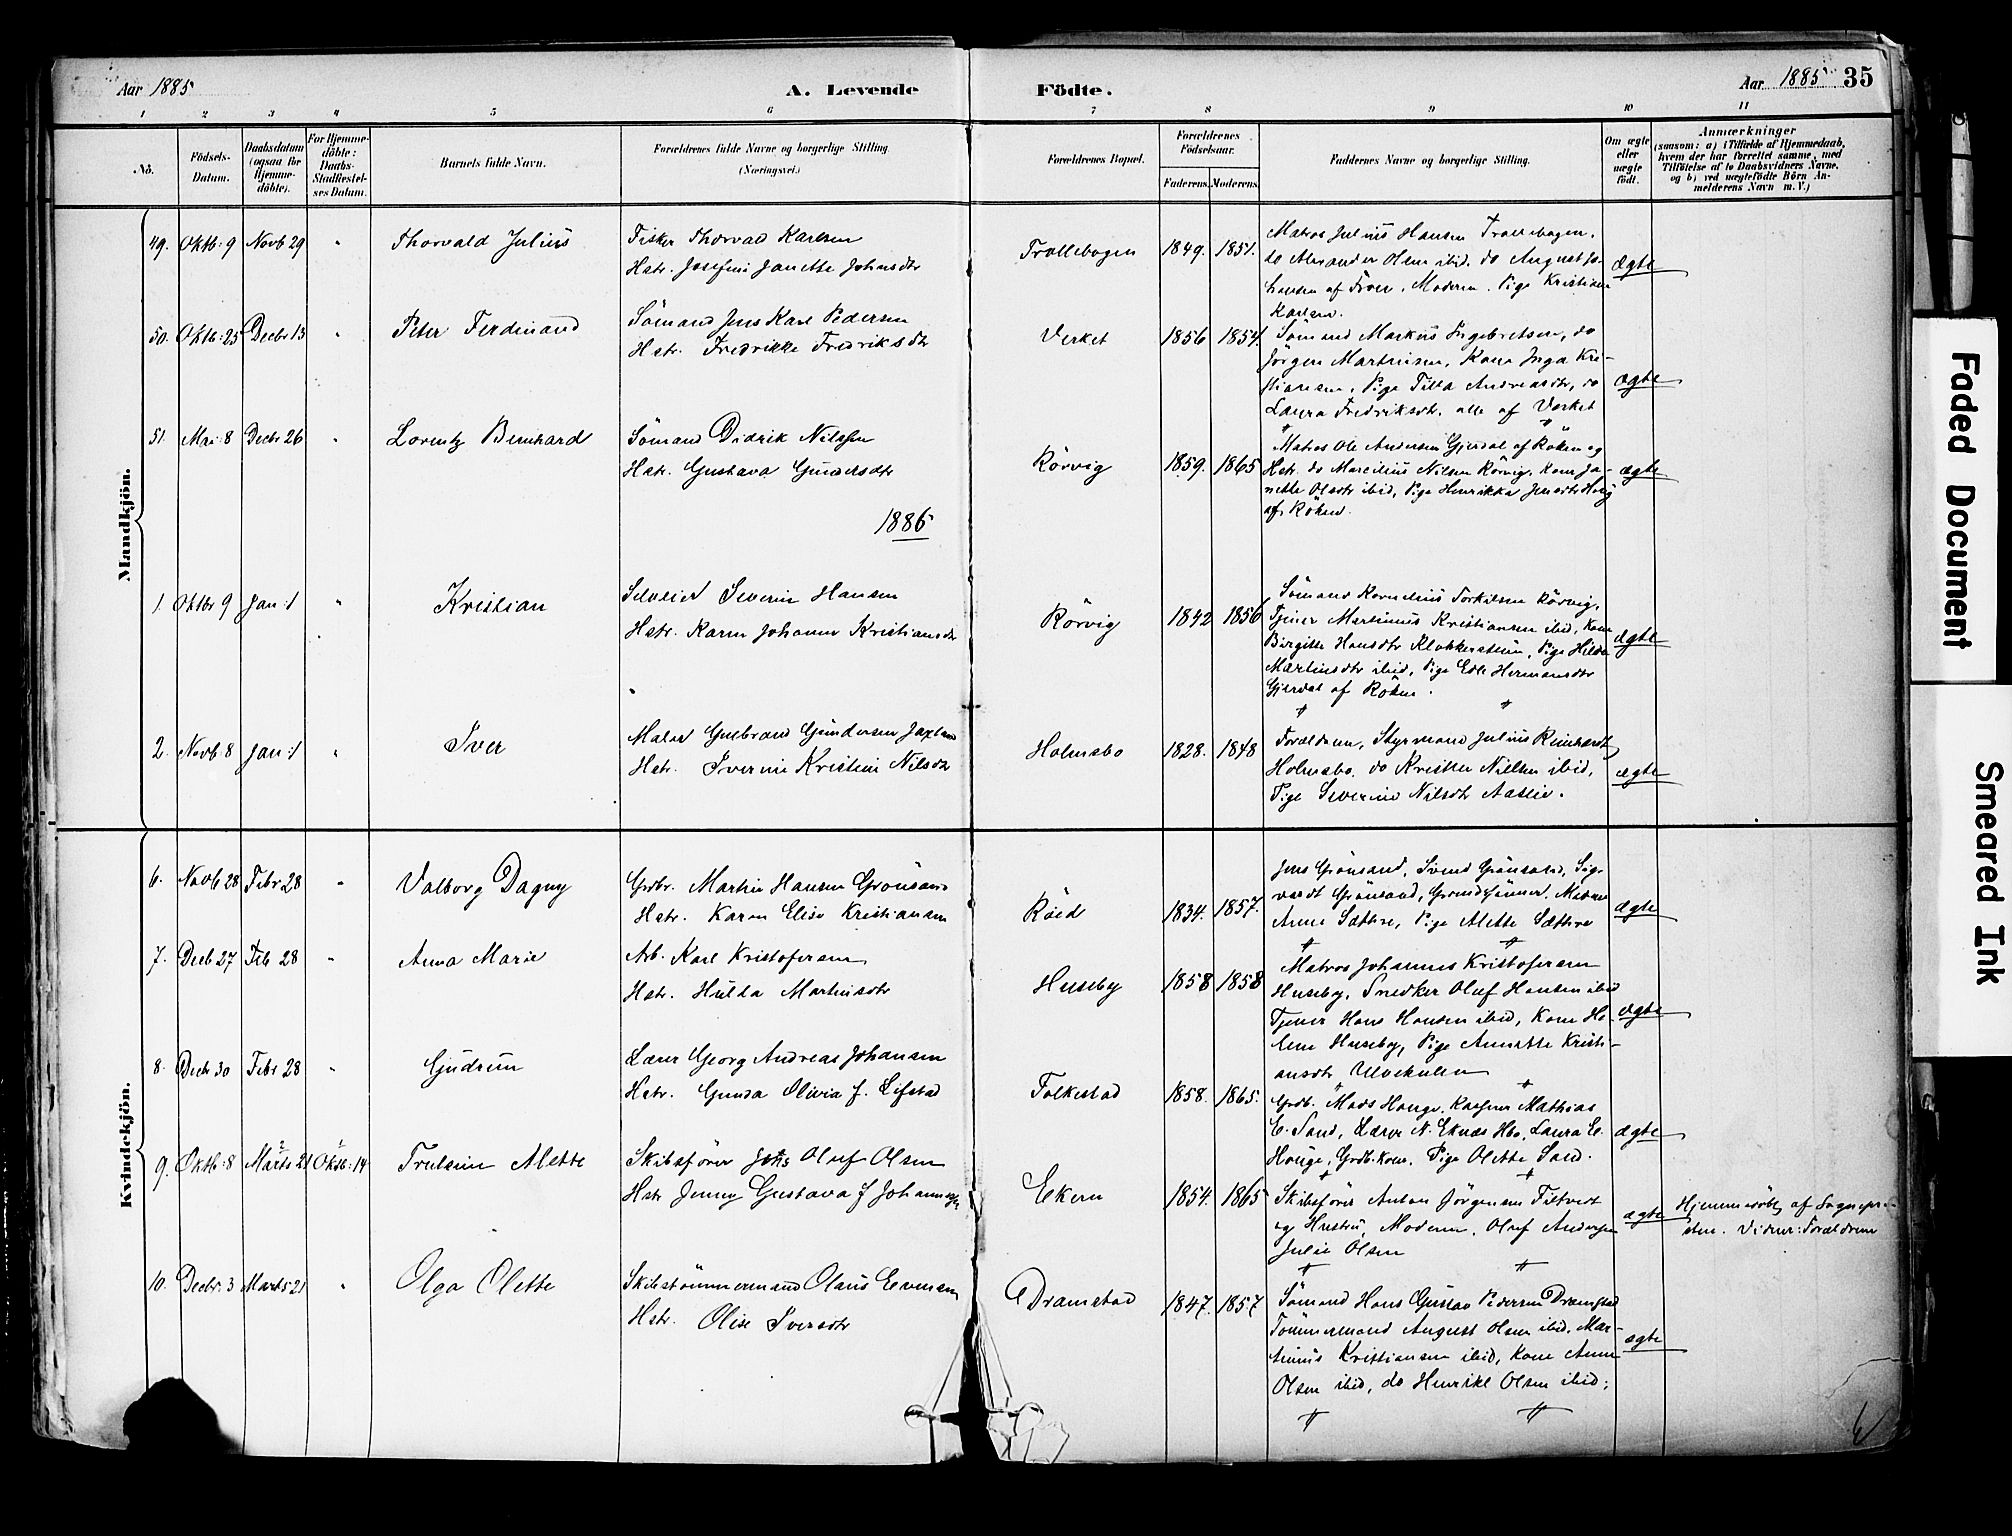 Aar 1885
A. Levende
Födte.
Aar 1885 35
1 2 3 4 5 6 7 8 9 10 11
No.
Födsels-
Datum.
Daabsdatum
(ogsaa for
Hjemme-
döbte).
For Hjemme-
döbte:
Daabs-
Stadfæstel-
ses Datum.
Barnets fulde Navn.
Forældrenes fulde Navne og borgerlige Stilling.
(Næringsvei.)
Forældrenes Bopæl.
Forældrenes
Födselsaar.
Faderens. Moderens.
Faddernes Navne og borgerlige Stilling.
Om ægte
eller
uægte
födt.
Anmærkninger
(saasom: a) i Tilfælde af Hjemmedaab,
hvem der har forrettet samme, med
Tilföielse af to Daabsvidners Navne,
og b) ved uægtefödte Börn An-
melderens Navn m. V.)
Mandkjön.
49. Oktb: 9 Novb 29 " Thorvald Julius
Fisker Thorvad Karlsen
Hstr. Josefine Janette Johnsdtr
Trollebogen 1849. 1851.
Matros Julius Hansen Trollebogen,
do Alexander Olsen ibid. do August Jo-
hansen af , Moderen. Pige Kristiane
Karlsen.
Ægte
50. Oktb: 25 Decbr 13 " Peter Ferdinand
Sömand Jens Karl Pedersen
Hstr. Fredrikke Fredriksdtr
Verket 1856 1854.
Sömand Markus Ingebretsen, do
Jörgen Martinsen, Kone Inga Kri-
stiansen, Pige Tilla Andreasdtr, do
Laura Fredriksdtr. alle af Verket
ægte
51. Mai: 8 Decbr 26 " Lorentz Bernhard
Sömand Didrik Nilssen
Hstr. Gustava Gundersdtr
Rörvig 1859. 1865
Matros Ole Andersen Gjerdal af Röken og
Hstr. do Marcilius Nilsen Rörvig, Kone Ja-
nette Olsdtr ibid, Pige Henrikka Jensdtr
af Röken.
ægte
1886
1. Oktbr 9 Jan: 1 " Kristian
Selveier Severin Hansen
Hstr. Karen Johanne Kristiansdtr
Rörvig 1842 1856
Sömand Kornelius Torkilsen Rörvig,
Tjener Martinius Kristiansen ibid, Kone
Birgitte Hansdtr Klokkersteien, Pige Hilda
Martinsdtr ibid, Pige Edle Hermansdtr
Gjerdal af Röken.
ægte
2. Novb 8 Jan: 1 " Iver
Maler Gulbrand Gundersen
Hstr. Iverine Kristine Nilsdtr
Holmsbo 1828. 1848
Forældrene, Styrmand Julius Reinhardt
Holmsbo. do Kristian Nielsen ibid,
Pige Severine Nilsdtr Aaslie.
ægte
Kvindekjön.
6. Novb 28 Febr 28 " Valborg Dagny
Grdbr. Martin Hansen Grönsand
Hstr. Karen Elise Kristiansen
Röed 1834. 1857.
Jens Grönsand, Svend Grönsand, Sig-
vardt Grönsand, , Madam
Anne Sæthre, Pige Alette Sæthre
ægte
7. Decb 27 Feb 28 " Anna Marie
Arb. Karl Kristofersen
Hstr. Hulda Martinsdtr
Huseby 1858 1858
Matros Johannes Kristofersen
Huseby, Snedker Oluf Hansen ibid
Tjener Hans Hansen ibid, Kone He-
lene Huseby, Pige Annette Kristi-
ansdtr Ulvekulen
ægte
8. Decb 30 Febr 28 " Gudrun
Lærer Georg Andreas Johansen
Hstr. Gunda Olivia f. Lifstad
Folkestad 1858. 1865.
Grdb. Mads Hauge, Mathias
E. Sand, Lærer N. Eknæs Hbo, Laura E.
Hauge, Grdb.kone, Pige Olette Sand.
ægte
9. Oktb: 8 Marts 21 Oktb: 14 Trulsine Alette
Skibsförer Jens Oluf Olsen
Hstr Jenny Gustava f Johannesen
Ekern 1854. 1865
Skibsförer Anton Jörgensen Tiltvedt
og Hustru, Moderen, Oluf Andersen
Julie Olsen
ægte
Hjemmedöbt af Sognepre-
sten. Vidner: Forældrene
10. Decbr. 3 Marts 21 " Olga Olette
Skibstömmermand Olaus Evensen
Hstr. Olise Iversdtr
Dramstad 1847. 1857
Sömand Hans Gustav Pedersen Dramstad
Tömmermand August Olsen ibid, Mar-
tinius Kristiansen ibid, Kone Anne
Olsen ibid, do Henrikke Olsen ibid;
ægte
Faded Document
Smeared Ink